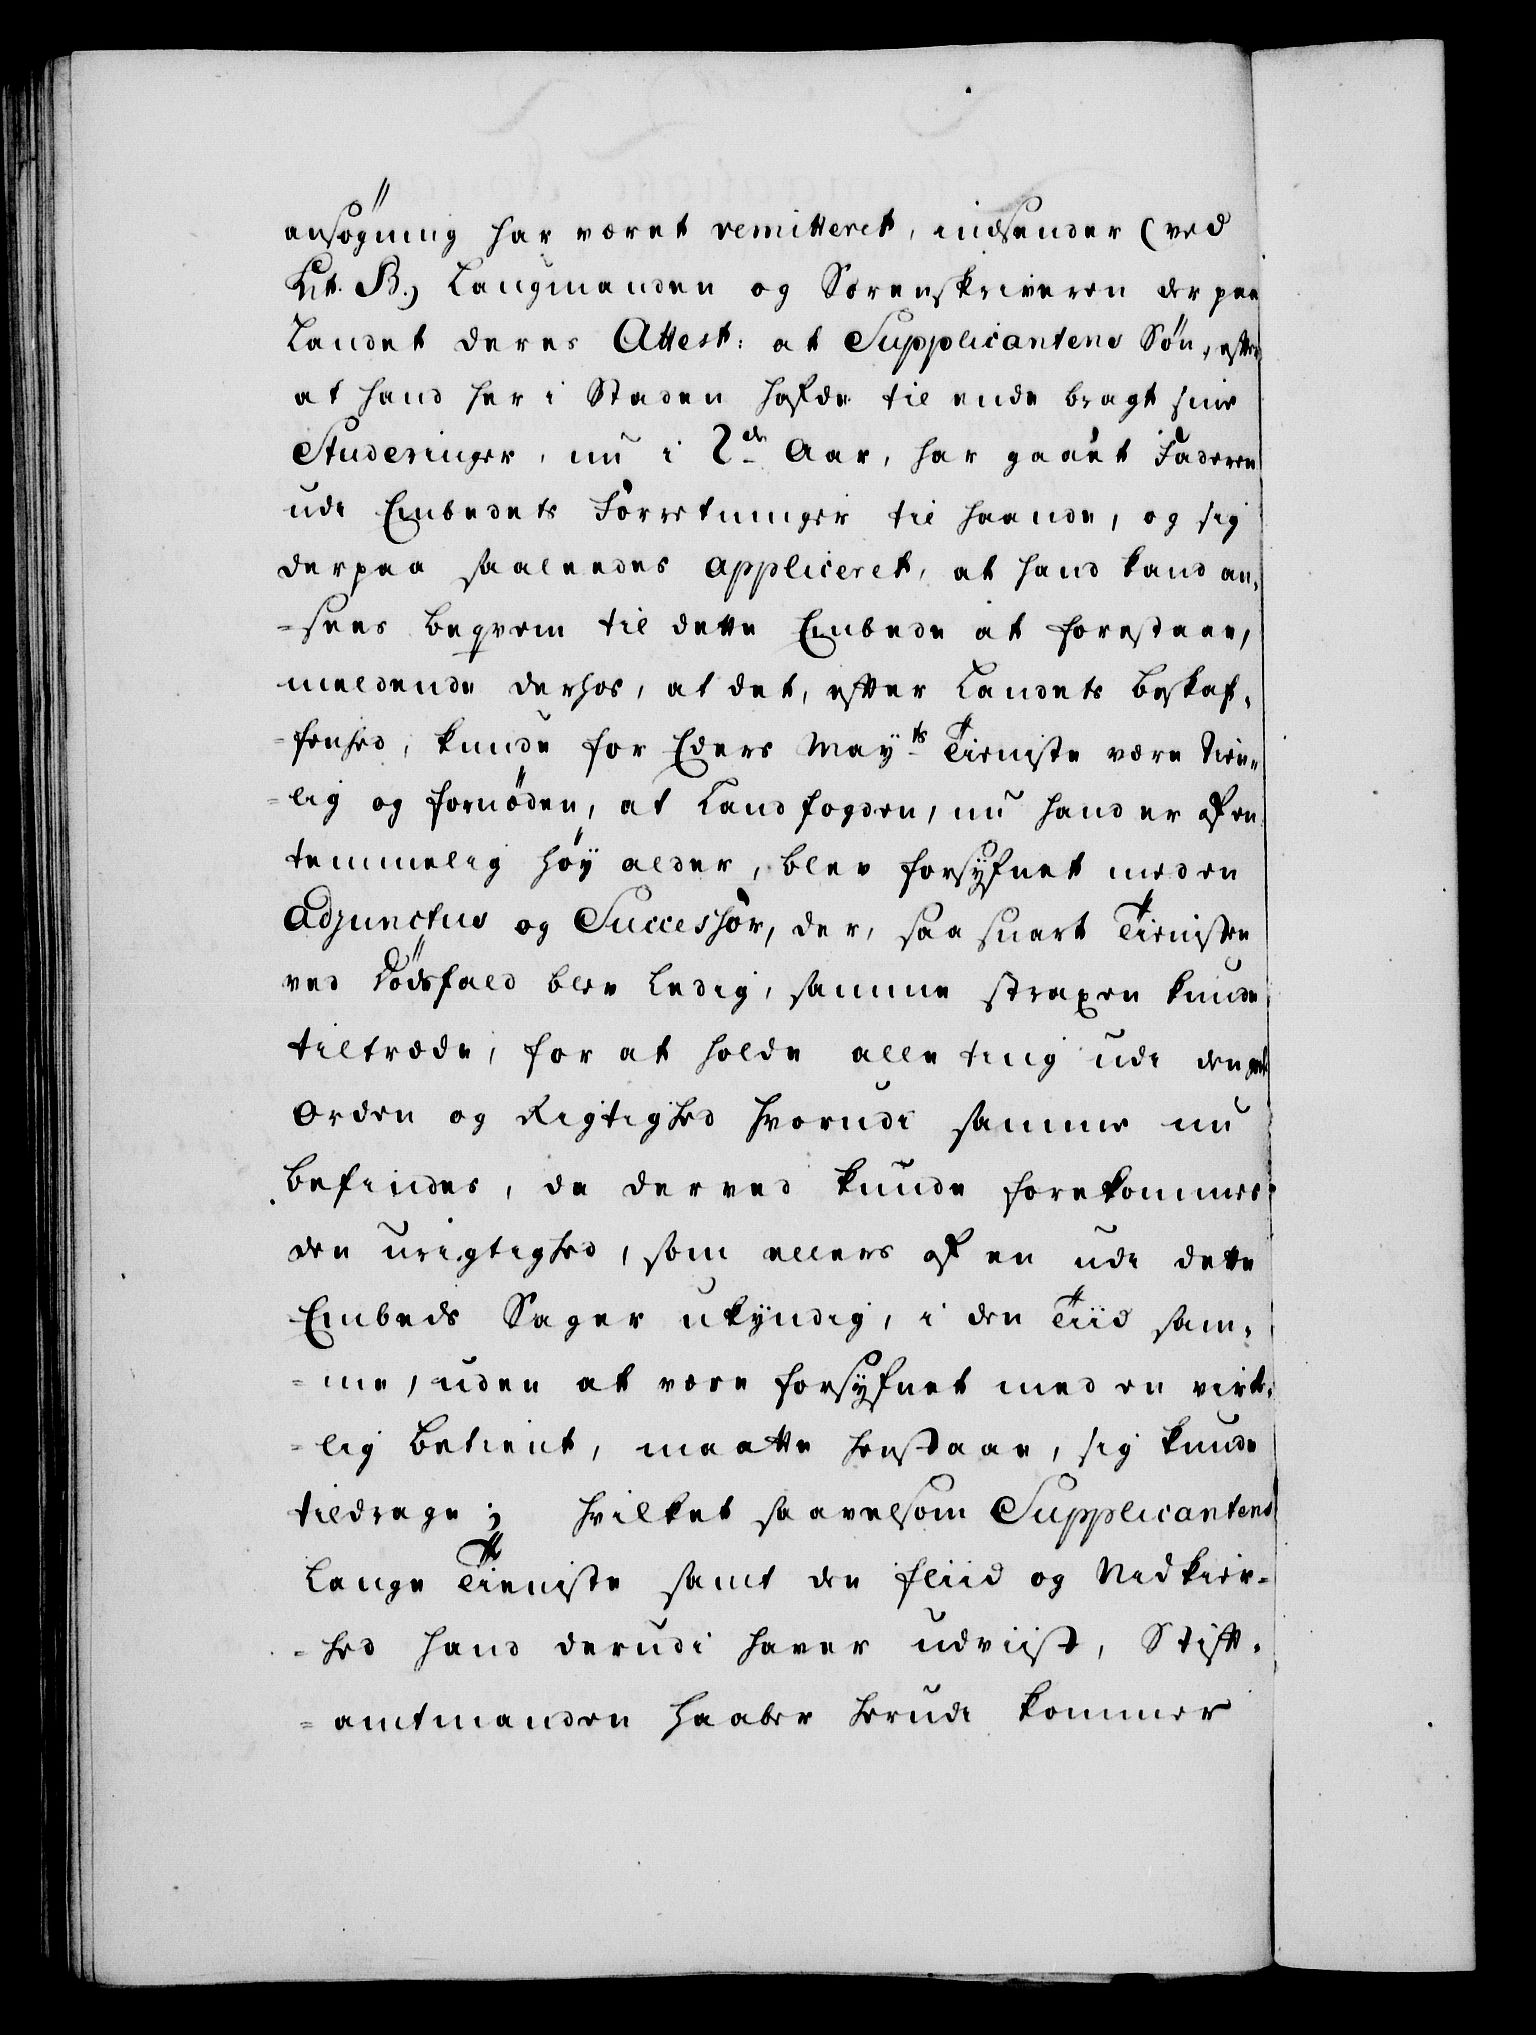 ansøgning har været remitteret, indsender (ved
Lit. B.) Laugmanden og Sorenskriveren der paa
Landet deres Attest: at Supplicantens Søn, efter
at hand her i Staden hafde til ende bragt sine
Studeringer, nu i 2de Aar, har gaaet Faderen
udi Embedets Forretninger til haande, og sig
derpaa saaleedes appliceret, at hand kand an-
=sees beqvem til dette Embede at forestaae,
meldende derhos, at det, efter Landets beskaf-
=fenhed, kunde for Eders Mayts Tieniste være tien-
=lig og fornøden, at Landfogden, nu hand er af en
temmelig høy alder, blev forsyfnet med en
Adjunctus og Successor, der, saa snart Tienisten
ved Dødsfald blev Ledig, samme straxen kunde
tiltræde, for at holde alle ting udi den
Orden og Rigtighed hvorudi samme nu
befindes, da derved kunde forekommes
den urigtighed, som ellers af en udi dette
Embeds Sager ukyndig, i den Tiid sam-
=me, uden at være forsyfnet med en virk-
=lig betient, maatte henstaae, sig kunde
tildrage; hvilket saavelsom Supplicantens
Lange Tieniste samt den fliid og Nidkier-
=hed hand derudi haver udviist, Stift-
=amtmanden haaber herudi kommer